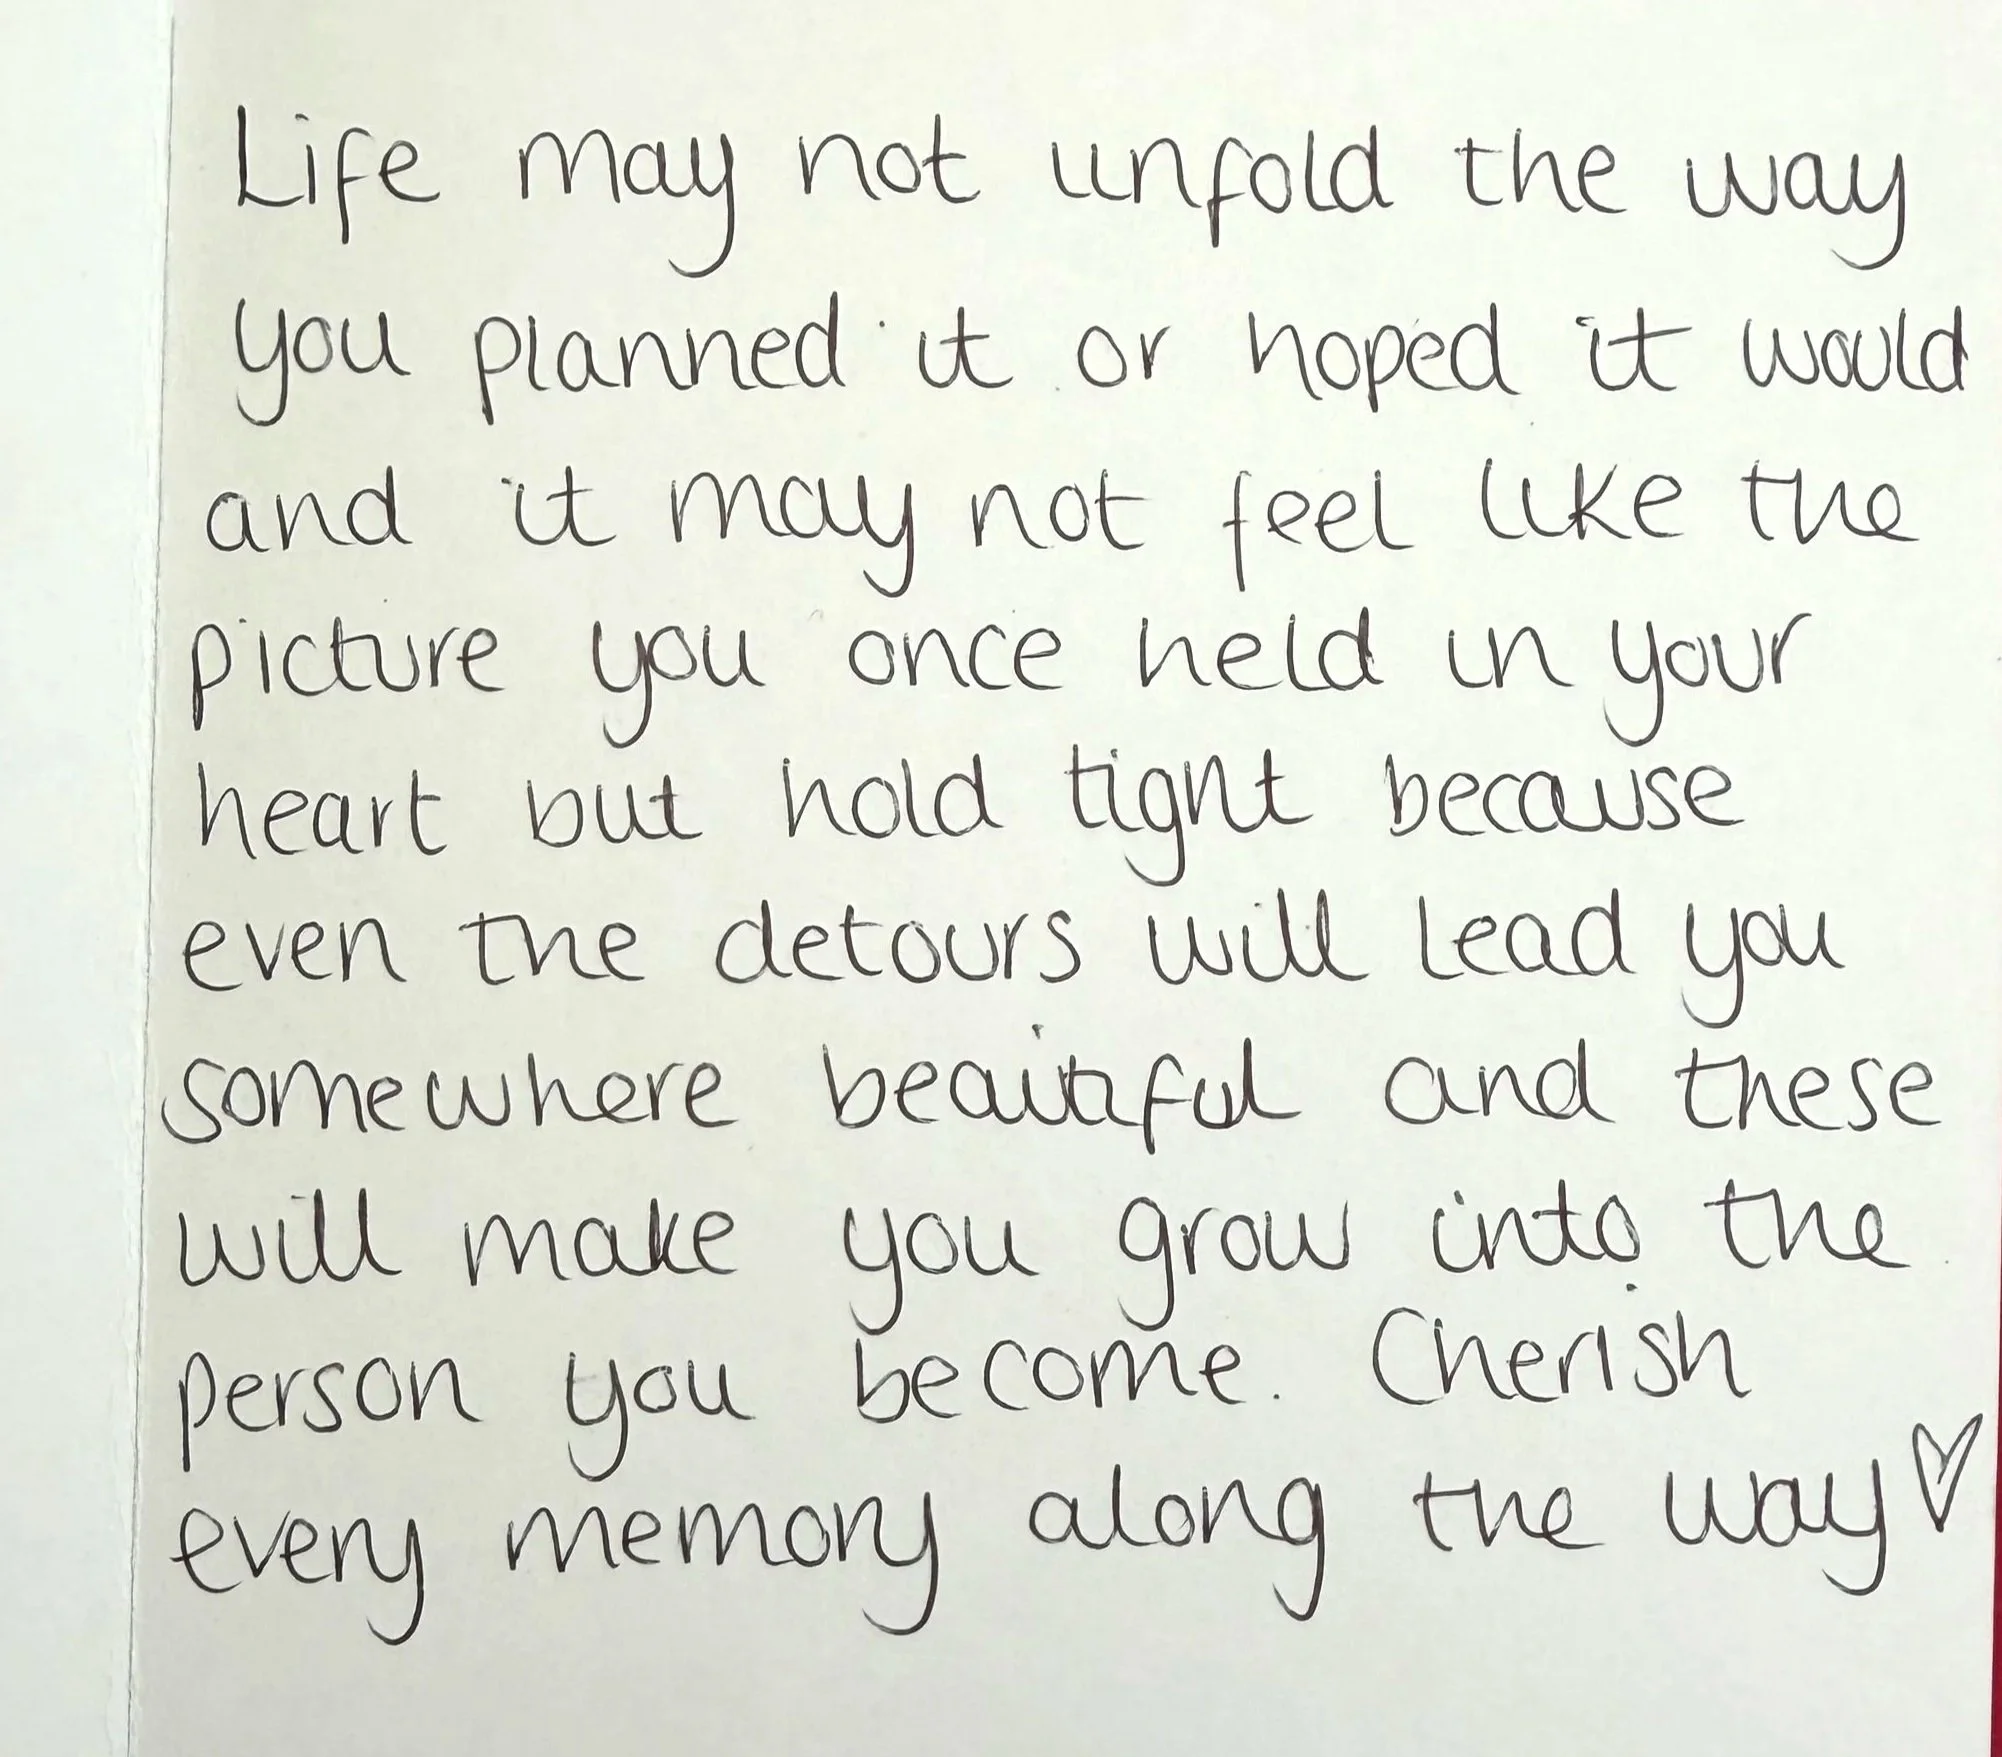 Life may not unfold the way
you planned it or hoped it would
and it may not feel like the
picture you once held in your
heart but hold tight because
even the detours will lead you
somewhere beautiful and these
will make you grow into the
person you become. Cherish
every memory along the way ♡